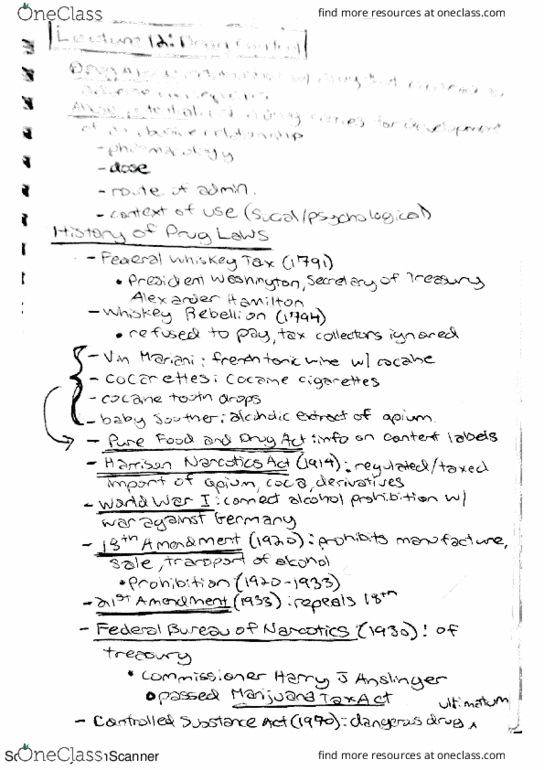 OneClass
find more resources at oneclass.com
OneClass
find more resources at oneclass.com
Lecture 12: Drug Control
Drug
Abuse potential: drug carries for development
of relationship
- pharmacology
- dose
- route of admin.
- context of use (social/psychological)
History of Drug Laws
- Federal Whiskey Tax (1791)
• President Washington, Secretary of Treasury
Alexander Hamilton
- Whiskey Rebellion (1794)
• refused to pay, tax collectors ignored
- Vin Mariani: french tonic wine w/ cocaine
- cocarettes: cocaine cigarettes
- cocaine tooth drops
- baby soother: alcoholic extract of opium
- Pure Food and Drug Act: info on content labels
- Harrison Narcotics Act (1914): regulated/taxed
import of opium, coca, derivatives
- World War I: connect alcohol prohibition w/
war against Germany
- 18th Amendment (1920): prohibits manufacture,
sale, transport of alcohol
• Prohibition (1920-1933)
- 21st Amendment (1933): repeals 18th
- Federal Bureau of Narcotics (1930): of
treasury
• commissioner Harry J Anslinger
• passed Marijuana Tax Act
ultimatum
- Controlled Substance Act (1970): dangerous drug ^
OneClass
Scanner
find more resources at oneclass.com